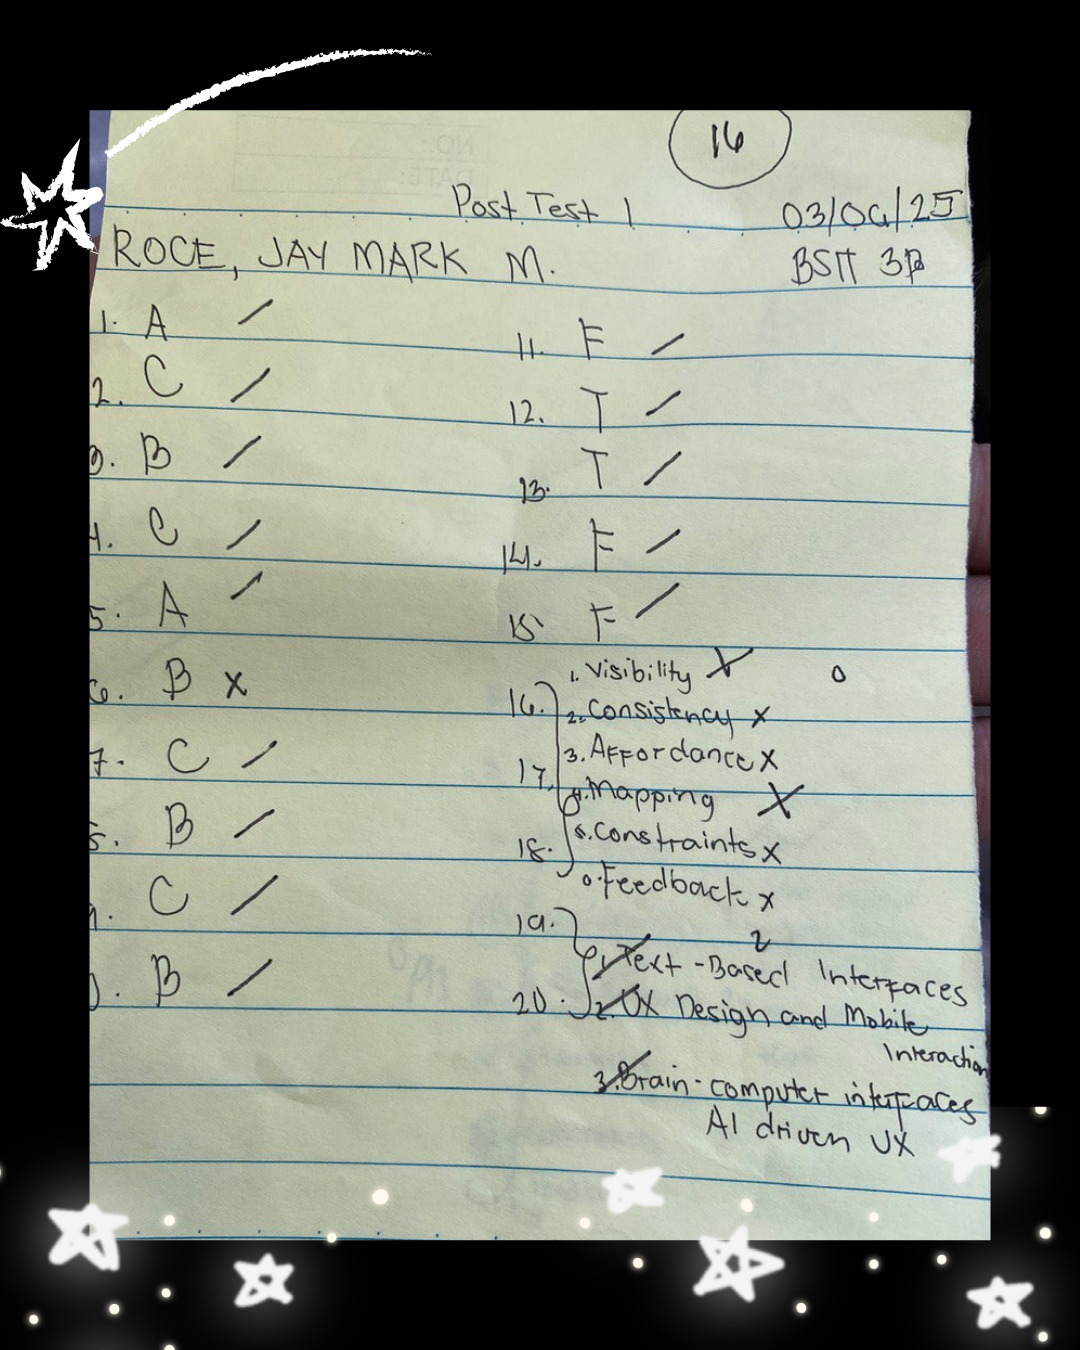 16
Post Test 1 03/06/25
ROCE, JAY MARK M. BSIT 3B
1. A /
2. C /
3. B /
4. C /
5. A /
6. B x
7. C /
8. B /
9. C /
). B /
11. F /
12. T /
13. T /
14. F /
15. F /
16. 1. Visibility X 0
2. Consistency x
17. 3. Affordance x
4. Mapping X
18. 5. Constraints x
6. Feedback x
19. 2
1. Text-Based Interfaces
20. 2. UX Design and Mobile
Interaction
3. Brain-computer interfaces
AI driven UX